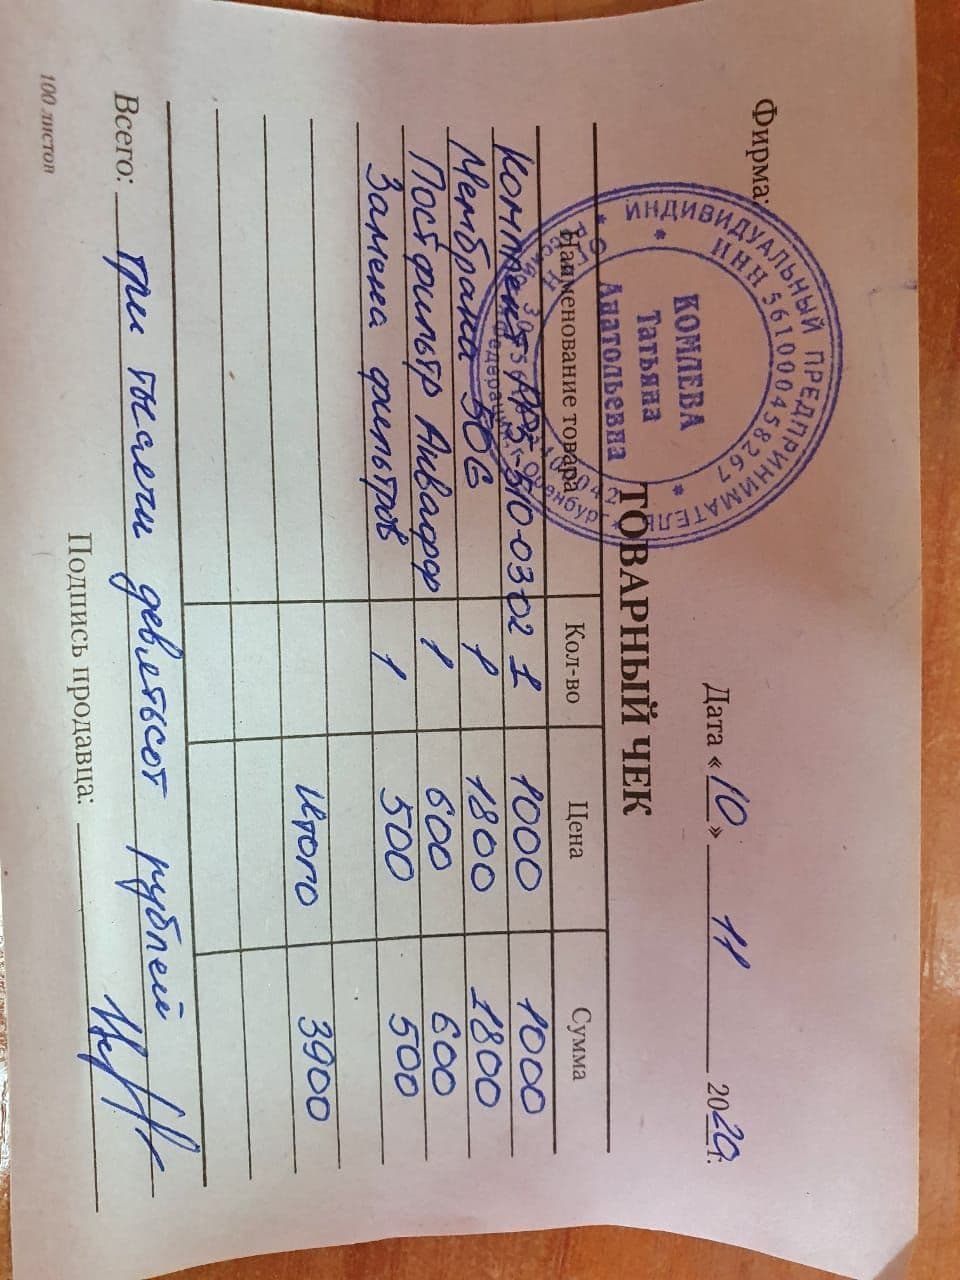 Фирма:
ИНДИВИДУАЛЬНЫЙ ПРЕДПРИНИМАТЕЛЬ
ИНН 561000458267
КОМЛЕВА
Татьяна
Анатольевна
ОГРН
Российская Федерация, г. Оренбург
Дата «10» 11 2020г.
ТОВАРНЫЙ ЧЕК
Наименование товара Кол-во Цена Сумма
Комплект PP5-510-03-02 1 1000 1000
Мембрана 50G 1 1800 1800
Постфильтр Аквафф 1 600 600
Замена фильтров 1 500 500
Итого 3900
Всего: три тысячи девятьсот рублей
Подпись продавца:
100 листов